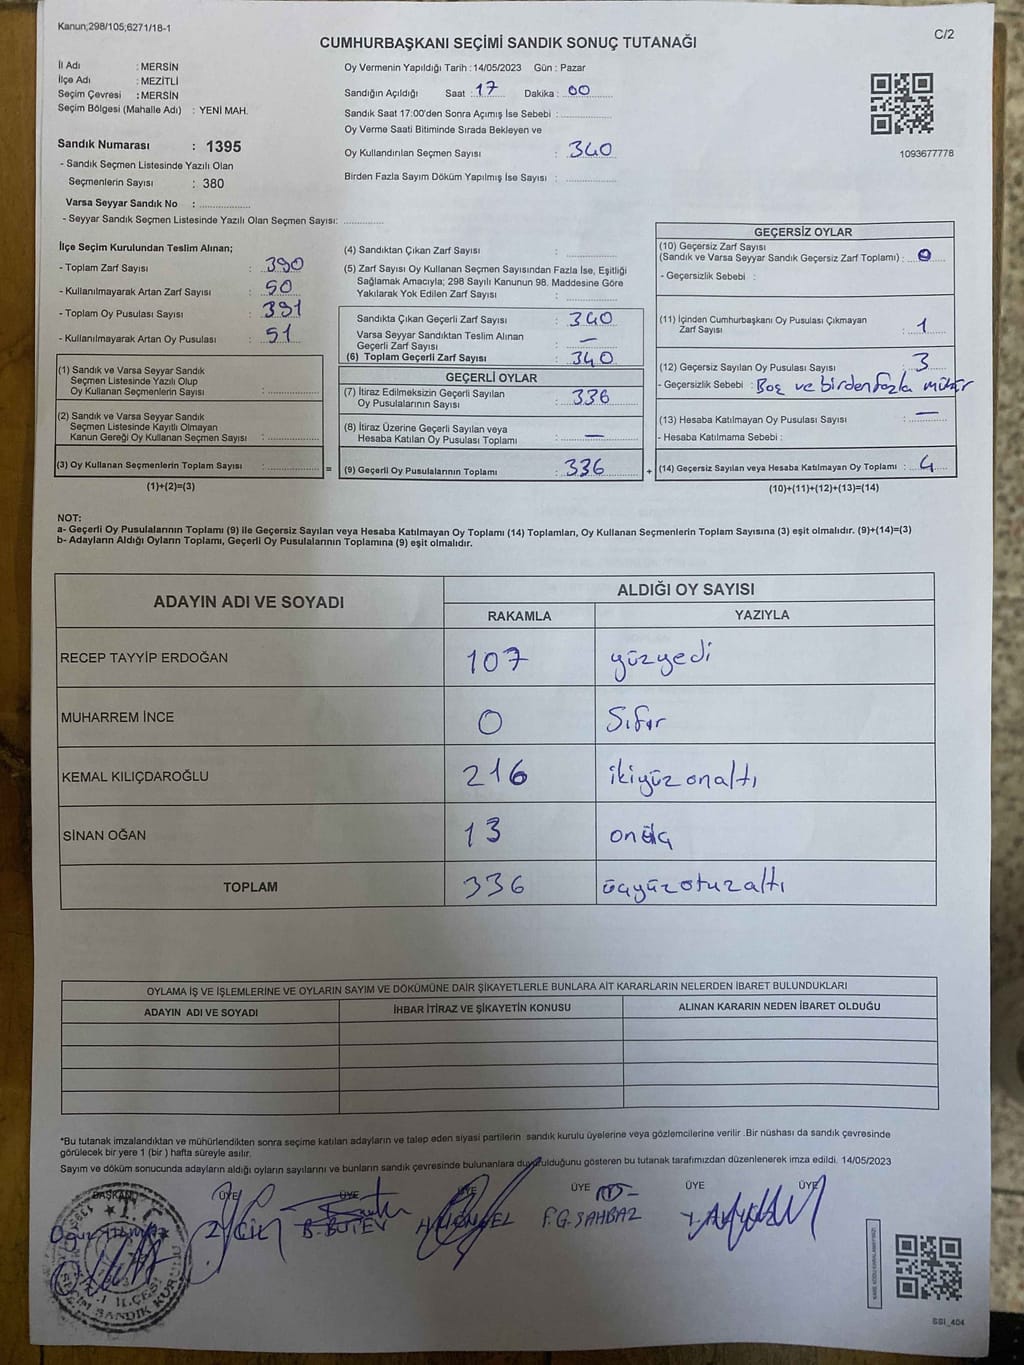 Kanun;298/105;6271/18-1
C/2
CUMHURBAŞKANI SEÇİMİ SANDIK SONUÇ TUTANAĞI
İl Adı : MERSİN
İlçe Adı : MEZİTLİ
Seçim Çevresi : MERSİN
Seçim Bölgesi (Mahalle Adı) : YENİ MAH.
Sandık Numarası : 1395
- Sandık Seçmen Listesinde Yazılı Olan
Seçmenlerin Sayısı : 380
Varsa Seyyar Sandık No :
- Seyyar Sandık Seçmen Listesinde Yazılı Olan Seçmen Sayısı:
Oy Vermenin Yapıldığı Tarih : 14/05/2023 Gün : Pazar
Sandığın Açıldığı Saat : 17 Dakika : 00
Sandık Saat 17:00'den Sonra Açımış İse Sebebi :
Oy Verme Saati Bitiminde Sırada Bekleyen ve
Oy Kullandırılan Seçmen Sayısı : 340
Birden Fazla Sayım Döküm Yapılmış İse Sayısı :
1093677778
İlçe Seçim Kurulundan Teslim Alınan;
- Toplam Zarf Sayısı : 390
- Kullanılmayarak Artan Zarf Sayısı : 50
- Toplam Oy Pusulası Sayısı : 391
- Kullanılmayarak Artan Oy Pusulası : 51
(1) Sandık ve Varsa Seyyar Sandık
Seçmen Listesinde Yazılı Olup
Oy Kullanan Seçmenlerin Sayısı :
(2) Sandık ve Varsa Seyyar Sandık
Seçmen Listesinde Kayıtlı Olmayan
Kanun Gereği Oy Kullanan Seçmen Sayısı :
(3) Oy Kullanan Seçmenlerin Toplam Sayısı : =
(1)+(2)=(3)
(4) Sandıktan Çıkan Zarf Sayısı :
(5) Zarf Sayısı Oy Kullanan Seçmen Sayısından Fazla İse, Eşitliği
Sağlamak Amacıyla; 298 Sayılı Kanunun 98. Maddesine Göre
Yakılarak Yok Edilen Zarf Sayısı :
Sandıkta Çıkan Geçerli Zarf Sayısı : 340
Varsa Seyyar Sandıktan Teslim Alınan
Geçerli Zarf Sayısı : —
(6) Toplam Geçerli Zarf Sayısı : 340
GEÇERLİ OYLAR
(7) İtiraz Edilmeksizin Geçerli Sayılan
Oy Pusulalarının Sayısı : 336
(8) İtiraz Üzerine Geçerli Sayılan veya
Hesaba Katılan Oy Pusulası Toplamı : —
(9) Geçerli Oy Pusulalarının Toplamı : 336 +
GEÇERSİZ OYLAR
(10) Geçersiz Zarf Sayısı
(Sandık ve Varsa Seyyar Sandık Geçersiz Zarf Toplamı) : 0
- Geçersizlik Sebebi :
(11) İçinden Cumhurbaşkanı Oy Pusulası Çıkmayan
Zarf Sayısı : 1
(12) Geçersiz Sayılan Oy Pusulası Sayısı : 3
- Geçersizlik Sebebi : Boş ve birden fazla mühür
(13) Hesaba Katılmayan Oy Pusulası Sayısı : —
- Hesaba Katılmama Sebebi :
(14) Geçersiz Sayılan veya Hesaba Katılmayan Oy Toplamı : 4
(10)+(11)+(12)+(13)=(14)
NOT:
a- Geçerli Oy Pusulalarının Toplamı (9) ile Geçersiz Sayılan veya Hesaba Katılmayan Oy Toplamı (14) Toplamları, Oy Kullanan Seçmenlerin Toplam Sayısına (3) eşit olmalıdır. (9)+(14)=(3)
b- Adayların Aldığı Oyların Toplamı, Geçerli Oy Pusulalarının Toplamına (9) eşit olmalıdır.
ADAYIN ADI VE SOYADI ALDIĞI OY SAYISI
RAKAMLA YAZIYLA
RECEP TAYYİP ERDOĞAN 107 yüzyedi
MUHARREM İNCE 0 Sıfır
KEMAL KILIÇDAROĞLU 216 ikiyüz onaltı
SİNAN OĞAN 13 onüç
TOPLAM 336 üçyüzotuzaltı
OYLAMA İŞ VE İŞLEMLERİNE VE OYLARIN SAYIM VE DÖKÜMÜNE DAİR ŞİKAYETLERLE BUNLARA AİT KARARLARIN NELERDEN İBARET BULUNDUKLARI
ADAYIN ADI VE SOYADI İHBAR İTİRAZ VE ŞİKAYETİN KONUSU ALINAN KARARIN NEDEN İBARET OLDUĞU
*Bu tutanak imzalandıktan ve mühürlendikten sonra seçime katılan adayların ve talep eden siyasi partilerin sandık kurulu üyelerine veya gözlemcilerine verilir .Bir nüshası da sandık çevresinde
görülecek bir yere 1 (bir ) hafta süreyle asılır.
Sayım ve döküm sonucunda adayların aldığı oyların sayılarını ve bunların sandık çevresinde bulunanlara duyurulduğunu gösteren bu tutanak tarafımızdan düzenlenerek imza edildi. 14/05/2023
BAŞKAN ÜYE ÜYE ÜYE ÜYE ÜYE ÜYE
B. BUTEV F.G. SAHBAZ
T.C.
SSI_404